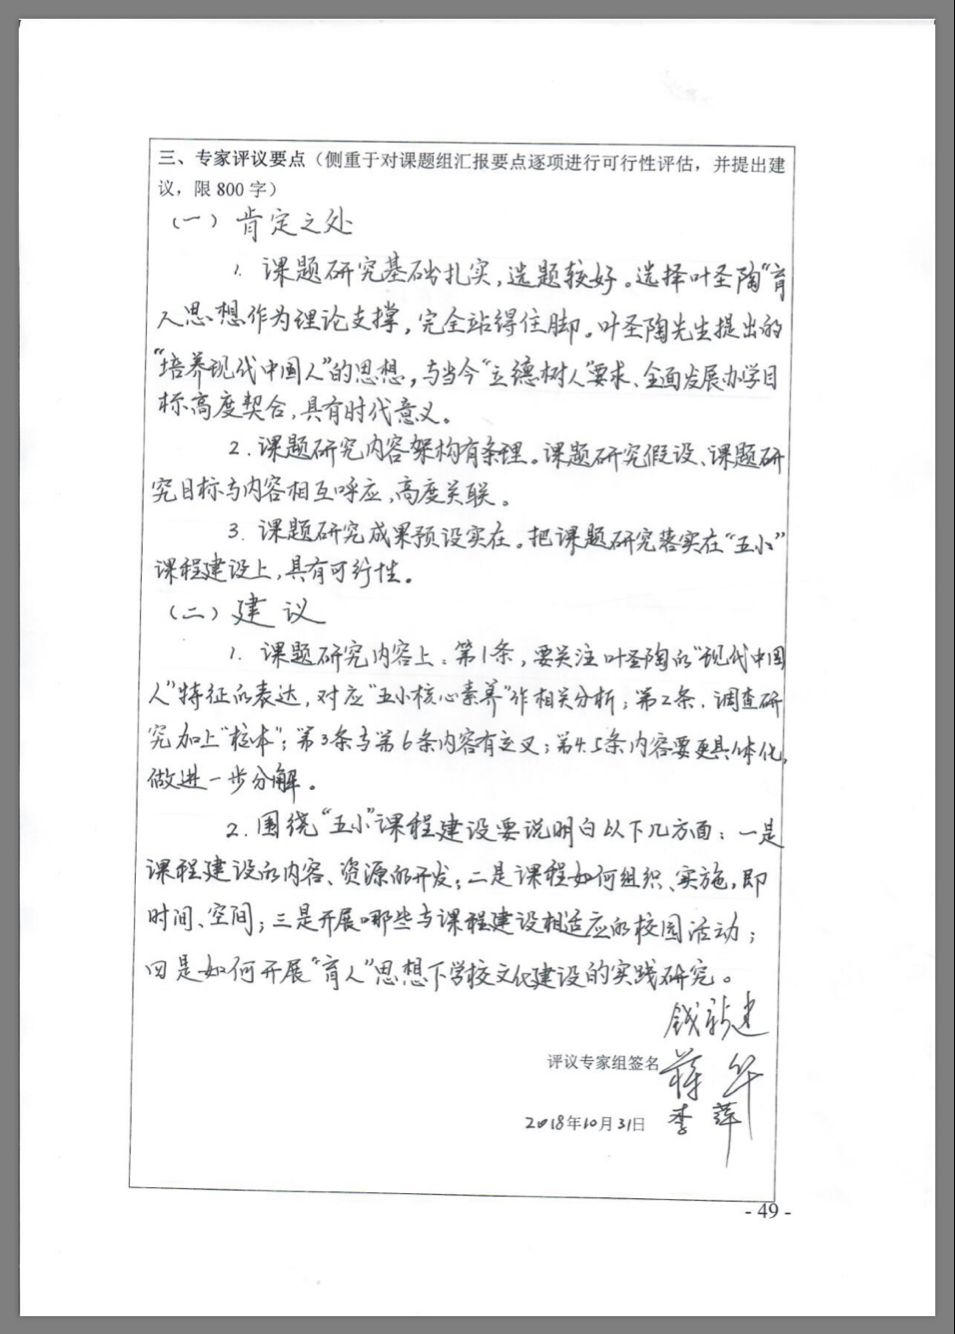 三、专家评议要点（侧重于对课题组汇报要点逐项进行可行性评估，并提出建
议，限 800 字）
（一）肯定之处
1. 课题研究基础扎实，选题较好。选择叶圣陶“育
人思想作为理论支撑，完全站得住脚。叶圣陶先生提出的
“培养现代中国人”的思想，与当今“立德树人”要求、全面发展办学目
标高度契合，具有时代意义。
2. 课题研究内容架构有条理。课题研究假设、课题研
究目标与内容相互呼应，高度关联。
3. 课题研究成果预设实在。把课题研究落实在“五小”
课程建设上，具有可行性。
（二）建议
1. 课题研究内容上：第1条，要关注叶圣陶的“现代中国
人”特征的表达，对应“五小核心素养”作相关分析；第2条，调查研
究加上“校本”；第3条与第6条内容有交叉；第4.5条内容要更具体化，
做进一步分解。
2. 围绕“五小”课程建设要说明白以下几方面：一是
课程建设的内容、资源的开发；二是课程如何组织、实施，即
时间、空间；三是开展哪些与课程建设相适应的校园活动；
四是如何开展“育人”思想下学校文化建设的实践研究。
钱新建
评议专家组签名 蒋华
2018年10月31日 李萍
- 49 -